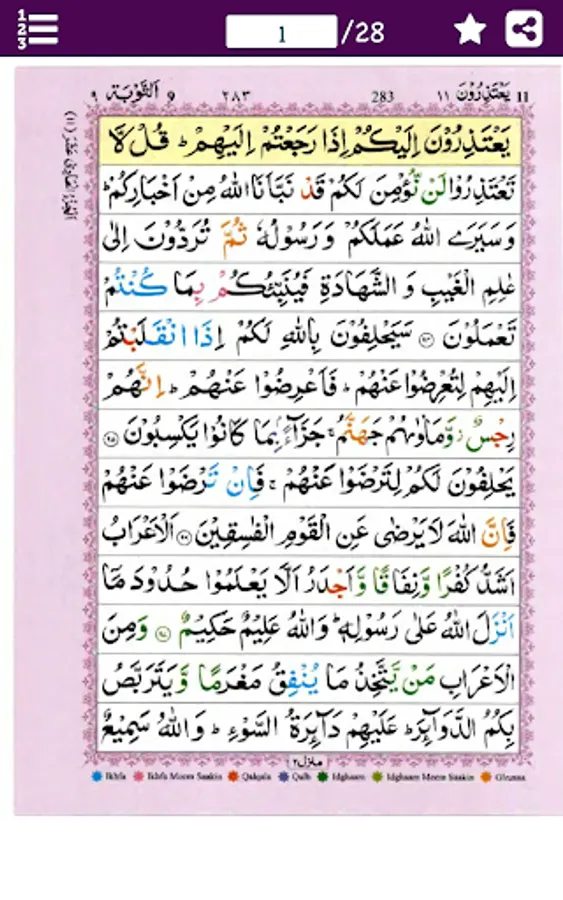 1 /28
11 یَعْتَذِرُوْنَ ١١ 283 ٢٨٣ 9 اَلتَّوْبَة ٩
یَعْتَذِرُوْنَ اِلَیْكُمْ اِذَا رَجَعْتُمْ اِلَیْهِمْ ؕ قُلْ لَّا
تَعْتَذِرُوْا لَنْ نُّؤْمِنَ لَكُمْ قَدْ نَبَّاَنَا اللّٰهُ مِنْ اَخْبَارِكُمْ ؕ
وَ سَیَرَی اللّٰهُ عَمَلَكُمْ وَ رَسُوْلُهٗ ثُمَّ تُرَدُّوْنَ اِلٰی
عٰلِمِ الْغَیْبِ وَ الشَّهَادَةِ فَیُنَبِّئُكُمْ بِمَا كُنْتُمْ
تَعْمَلُوْنَ ۝۹۴ سَیَحْلِفُوْنَ بِاللّٰهِ لَكُمْ اِذَا انْقَلَبْتُمْ
اِلَیْهِمْ لِتُعْرِضُوْا عَنْهُمْ ؕ فَاَعْرِضُوْا عَنْهُمْ ؕ اِنَّهُمْ
رِجْسٌ ؗ وَّ مَاْوٰىهُمْ جَهَنَّمُ ۚ جَزَآءًۢ بِمَا كَانُوْا یَكْسِبُوْنَ ۝۹۵
یَحْلِفُوْنَ لَكُمْ لِتَرْضَوْا عَنْهُمْ ۚ فَاِنْ تَرْضَوْا عَنْهُمْ
فَاِنَّ اللّٰهَ لَا یَرْضٰی عَنِ الْقَوْمِ الْفٰسِقِیْنَ ۝۹۶ اَلْاَعْرَابُ
اَشَدُّ كُفْرًا وَّ نِفَاقًا وَّ اَجْدَرُ اَلَّا یَعْلَمُوْا حُدُوْدَ مَاۤ
اَنْزَلَ اللّٰهُ عَلٰی رَسُوْلِهٖ ؕ وَ اللّٰهُ عَلِیْمٌ حَكِیْمٌ ۝۹۷ وَ مِنَ
الْاَعْرَابِ مَنْ یَّتَّخِذُ مَا یُنْفِقُ مَغْرَمًا وَّ یَتَرَبَّصُ
بِكُمُ الدَّوَآىِٕرَ ؕ عَلَیْهِمْ دَآىِٕرَةُ السَّوْءِ ؕ وَ اللّٰهُ سَمِیْعٌ
منزل ٢
Ikhfa Ikhfa Meem Saakin Qalqala Qalb Idghaam Idghaam Meem Saakin Ghunna